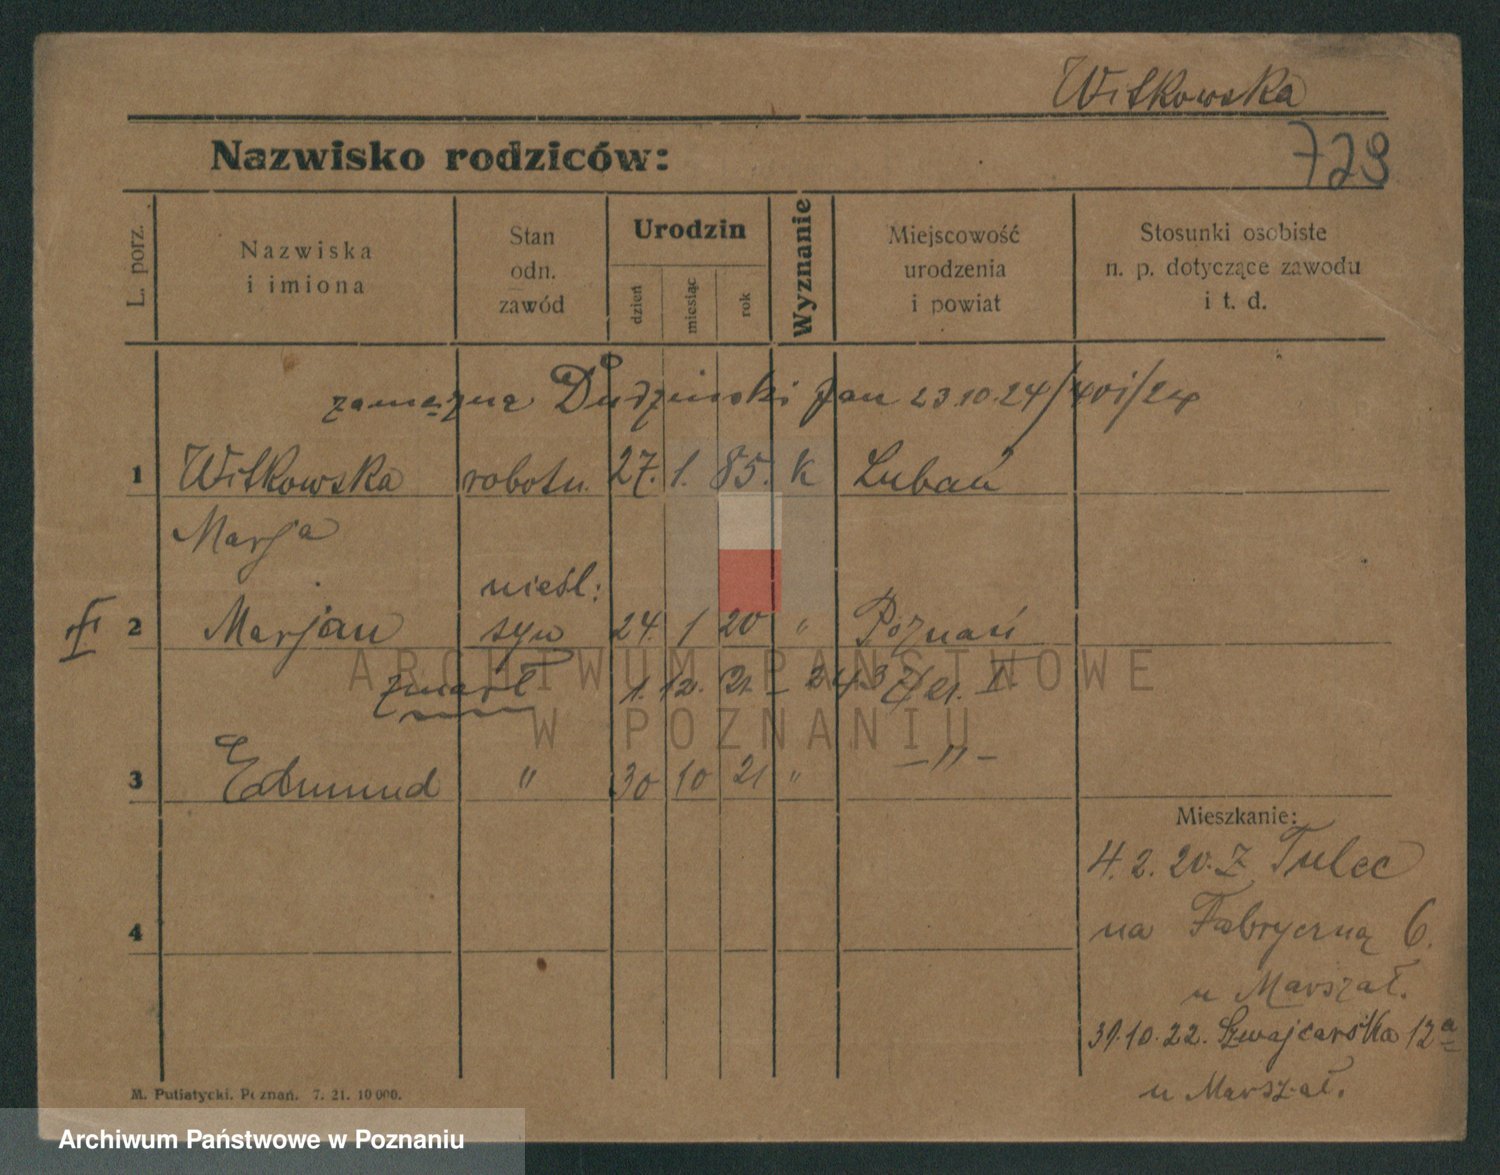 Witkowska
Nazwisko rodziców:
729
L. porz.
Nazwiska
i imiona
Stan
odn.
zawód
Urodzin
dzień
miesiąc
rok
Wyznanie
Miejscowość
urodzenia
i powiat
Stosunki osobiste
n. p. dotyczące zawodu
i t. d.
zamężna Dudziński Jan 23.10.24
1 Witkowska robotn. 27. 1. 85. k Lubań
Marja
nieśl:
2 Marjan syn 24. 1 20 " Poznań
zmarł 1. 12. 21.
3 Edmund " 30 10 21 " - " -
Mieszkanie:
4. 2. 20. z Tulec
na Fabryczną 6.
u Marszał.
4
31.10.22. Szwajcarska 12a
u Marszał.
M. Putiatycki. Poznań. 7. 21. 10 000.
ARCHIWUM PAŃSTWOWE
W POZNANIU
Archiwum Państwowe w Poznaniu